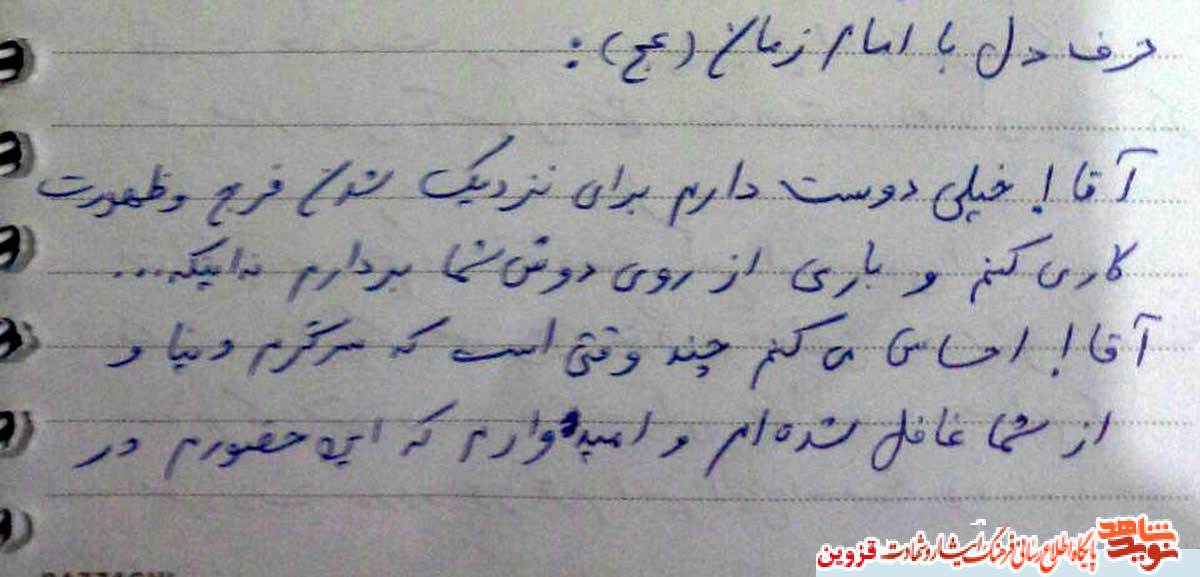 حرف دل با امام زمان (عج) :
آقا! خیلی دوست دارم برای نزدیک شدن فرج و ظهورت
کاری کنم و باری از روی دوش شما بردارم نه اینکه...
آقا! احساس می کنم چند وقتی است که سرگرم دنیا و
از شما غافل شده ام و امیدوارم که این حضورم در
نوید شاهد
پایگاه اطلاع رسانی فرهنگ ایثار و شهادت قزوین